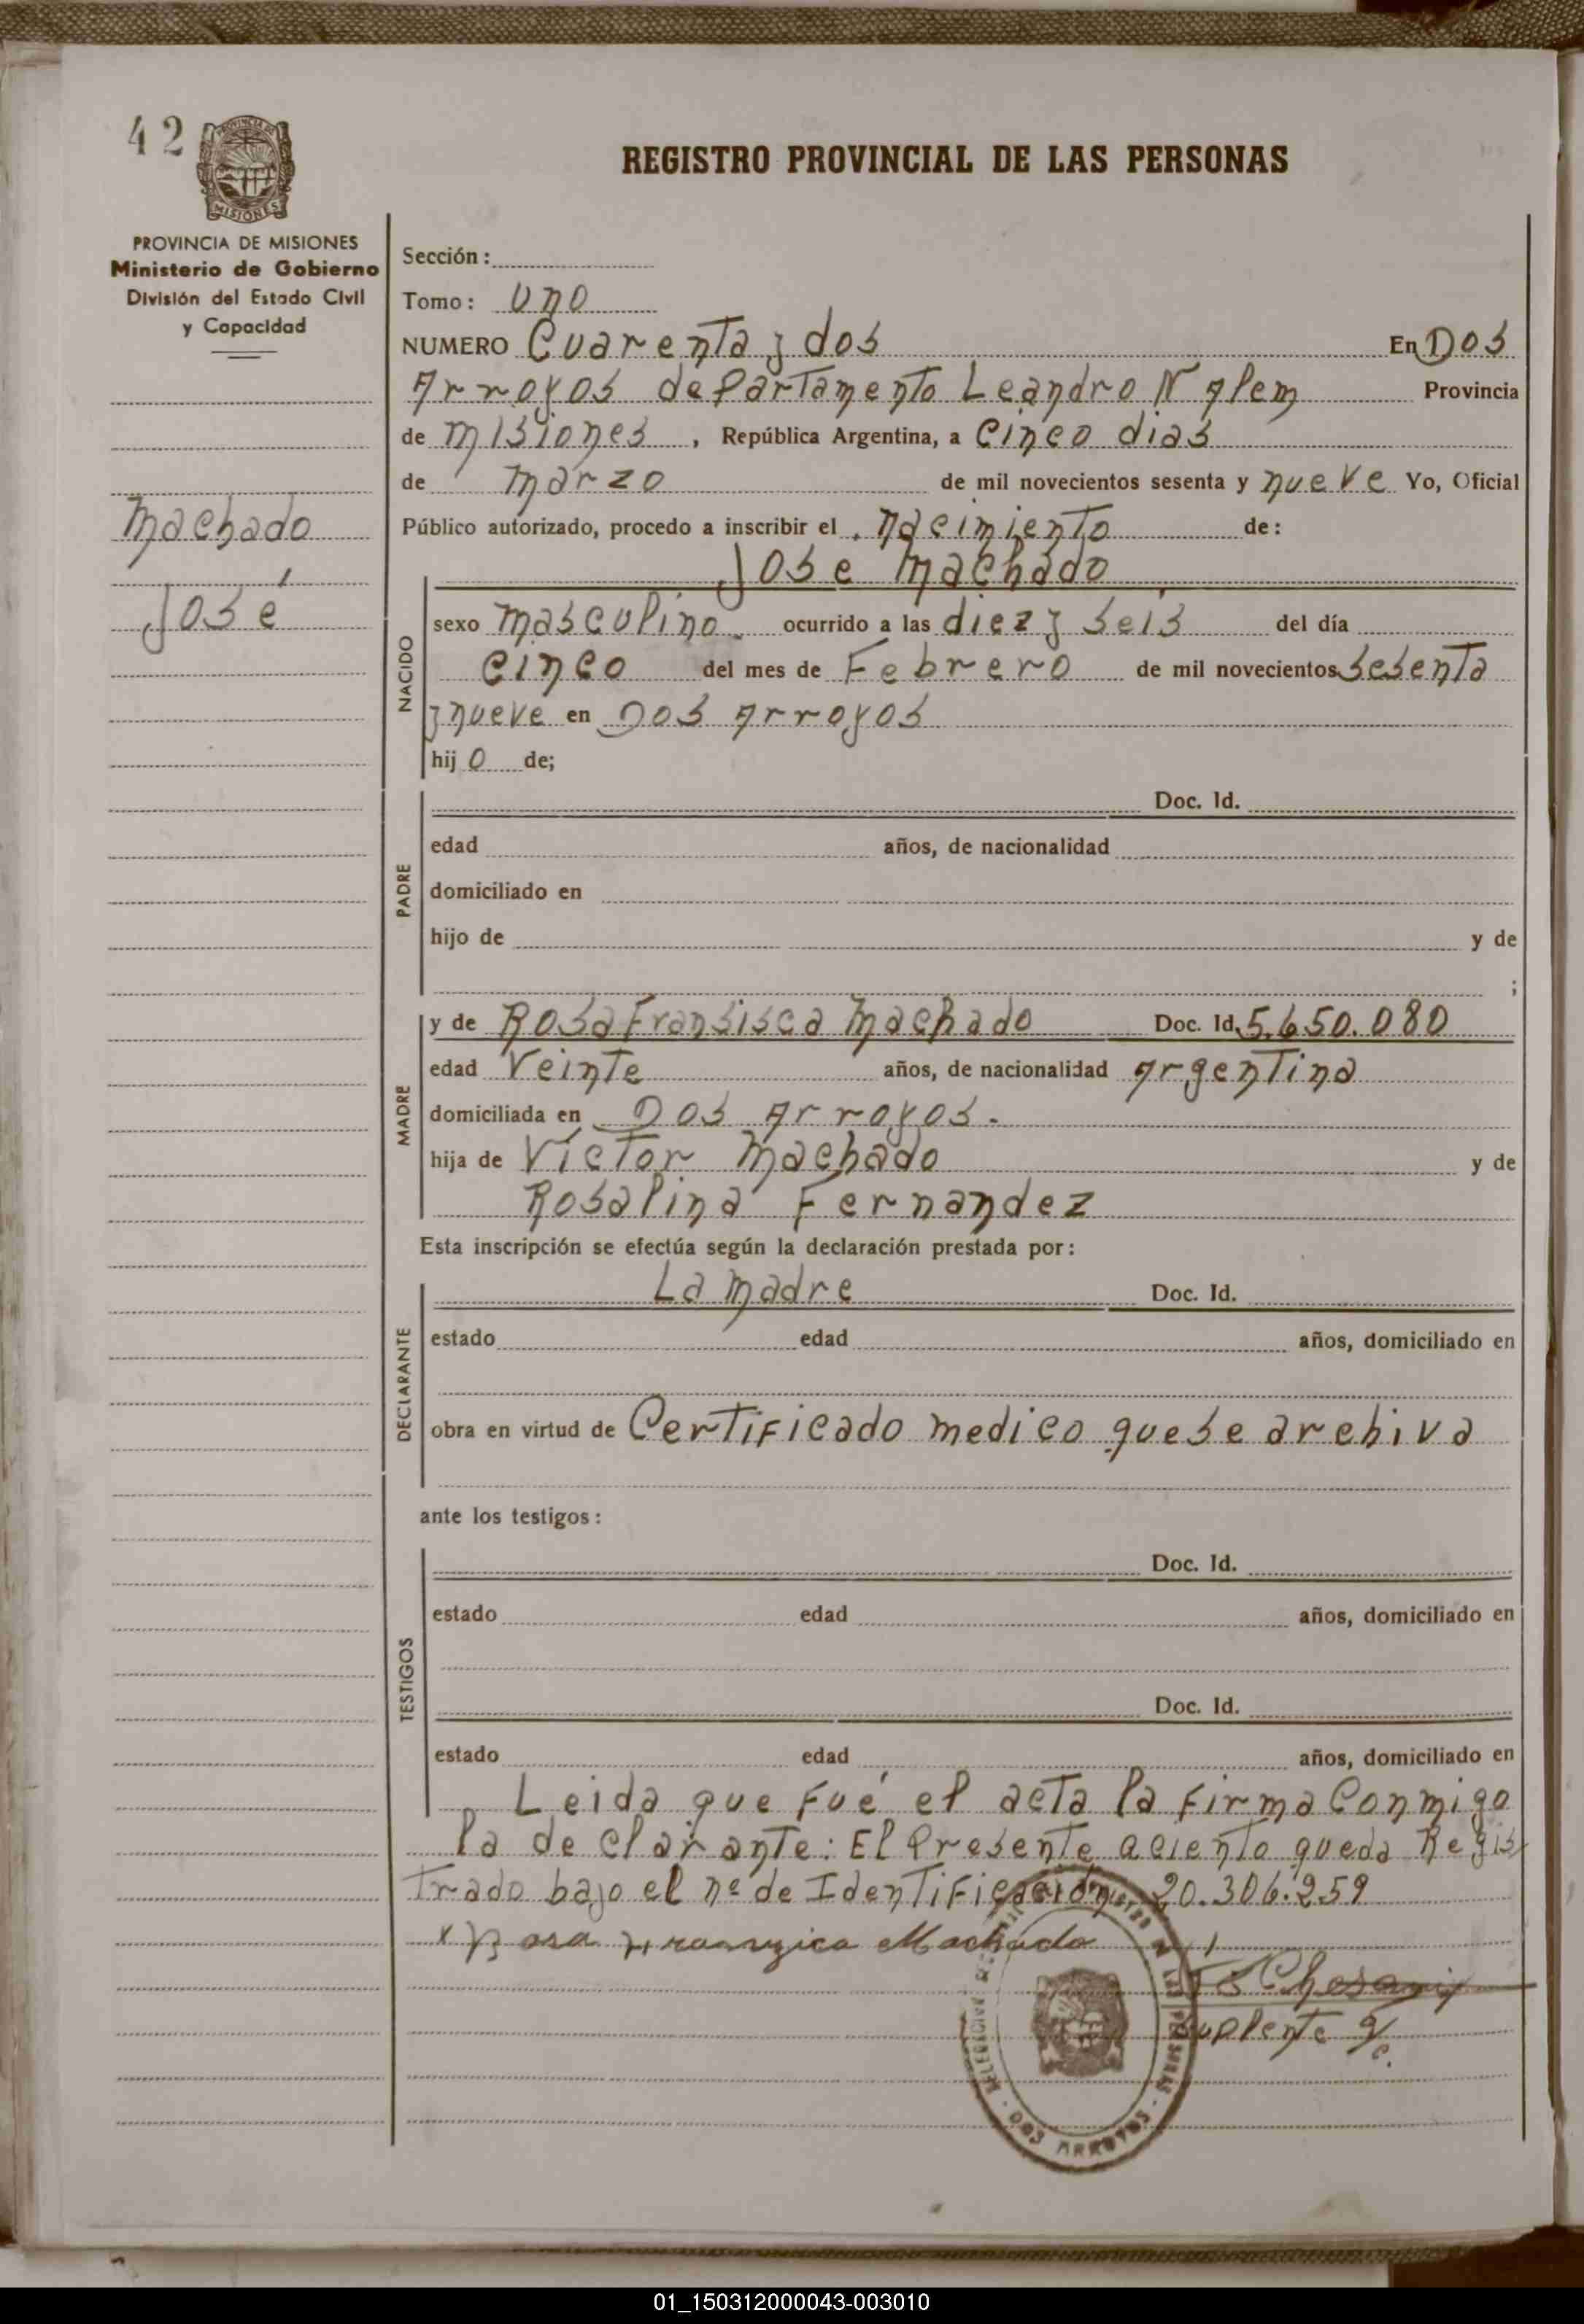 42
PROVINCIA DE
MISIONES
REGISTRO PROVINCIAL DE LAS PERSONAS
PROVINCIA DE MISIONES
Ministerio de Gobierno
División del Estado Civil
y Capacidad
Machado
José
Sección:
Tomo: Uno
NUMERO Cuarenta y dos En Dos
Arroyos departamento Leandro N Alem Provincia
de Misiones, República Argentina, a Cinco dias
de Marzo de mil novecientos sesenta y nueve Yo, Oficial
Público autorizado, procedo a inscribir el nacimiento de:
Jose Machado
NACIDO
sexo Masculino ocurrido a las diez y seis del día
Cinco del mes de Febrero de mil novecientos sesenta
y nueve en Dos Arroyos
hijo de;
PADRE
Doc. Id.
edad años, de nacionalidad
domiciliado en
hijo de y de
;
MADRE
y de Rosa Fransisca Machado Doc. Id. 5.650.080
edad Veinte años, de nacionalidad Argentina
domiciliada en Dos Arroyos.
hija de Víctor Machado y de
Rosalina Fernandez
Esta inscripción se efectúa según la declaración prestada por:
DECLARANTE
La Madre Doc. Id.
estado edad años, domiciliado en
obra en virtud de Certificado medico que se archiva
ante los testigos:
TESTIGOS
Doc. Id.
estado edad años, domiciliado en
Doc. Id.
estado edad años, domiciliado en
Leida que fué el acta la firma Conmigo
la declarante: El Presente aciento queda Regis
trado bajo el nº de Identificación 20.306.259
x Rosa Franzica Machado
Suplente
DOS ARROYOS
01_150312000043-003010